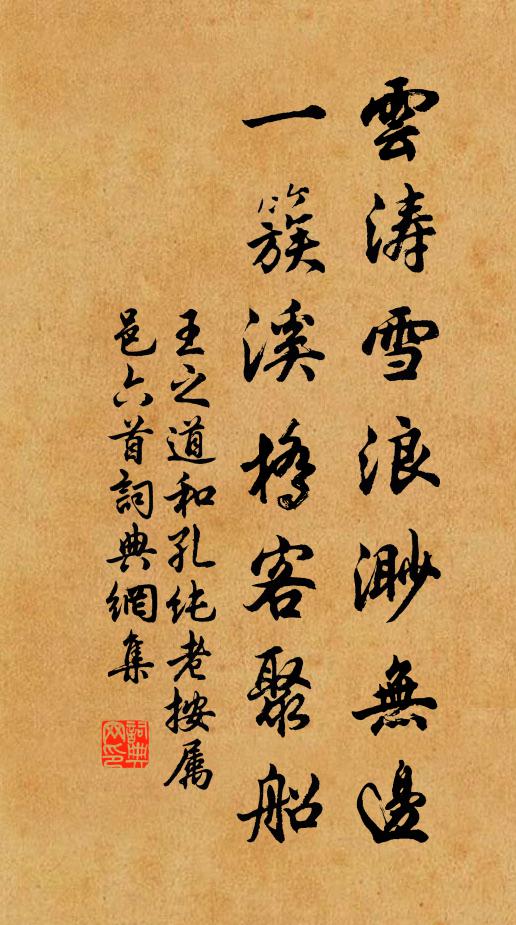 雲涛雪浪渺無邊
一簇溪橋客聚船
王之道和孔纯老按属
邑六首詞典網集
詞典网印